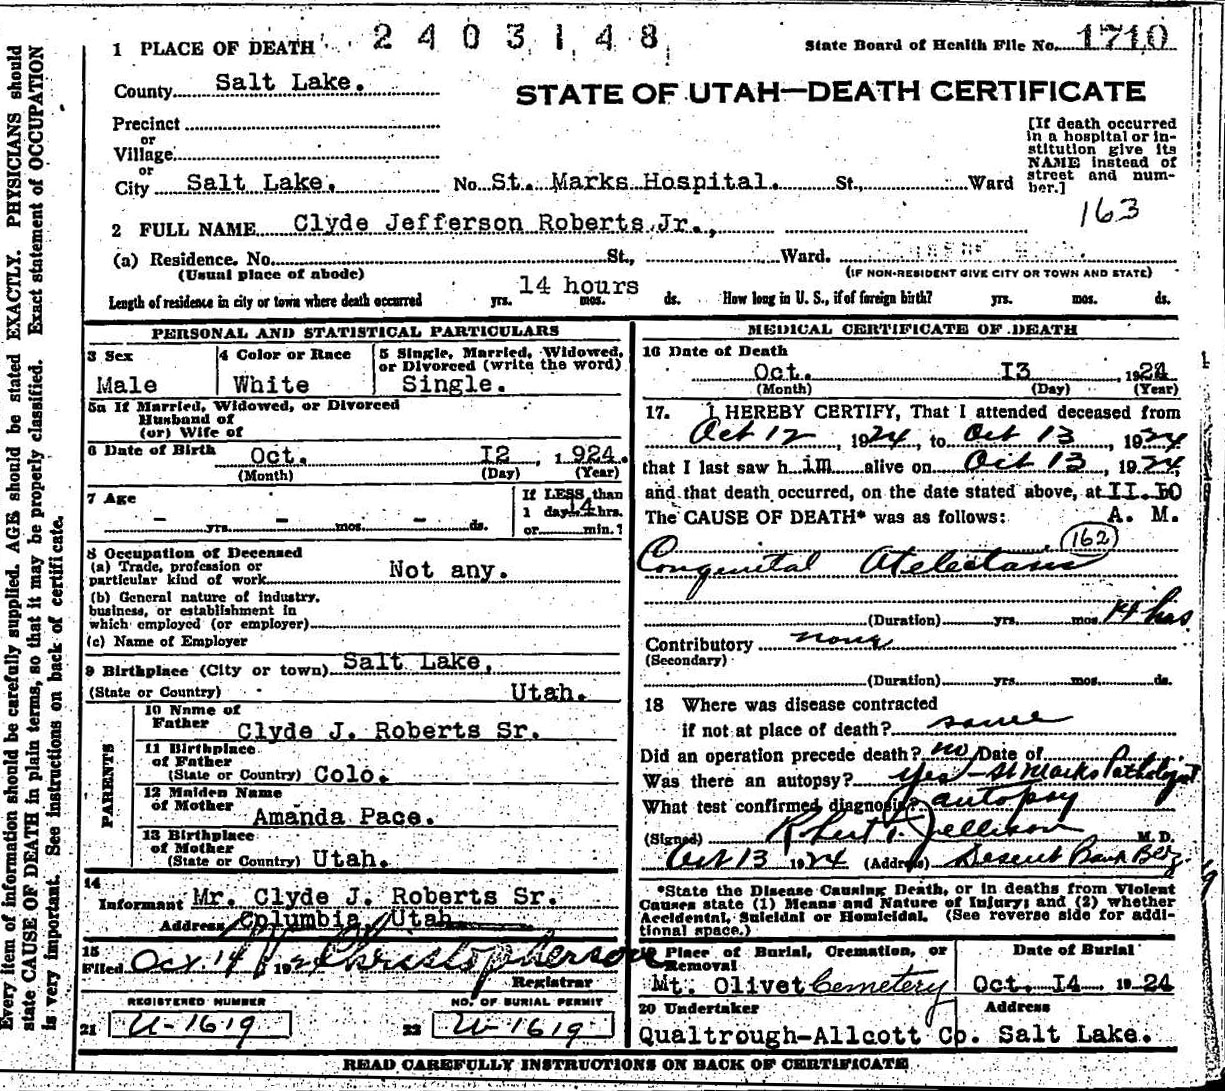 1 PLACE OF DEATH 2403148 State Board of Health File No. 1710
County Salt Lake.
STATE OF UTAH—DEATH CERTIFICATE
Precinct
or
Village
or
City Salt Lake. No St. Marks Hospital. St., Ward
[If death occurred
in a hospital or in-
stitution give its
NAME instead of
street and num-
ber.]
163
2 FULL NAME Clyde Jefferson Roberts Jr.,
(a) Residence. No. St., Ward.
(Usual place of abode) (IF NON-RESIDENT GIVE CITY OR TOWN AND STATE)
14 hours
Length of residence in city or town where death occurred yrs. mos. ds. How long in U. S., if of foreign birth? yrs. mos. ds.
PERSONAL AND STATISTICAL PARTICULARS
3 Sex
Male
4 Color or Race
White
5 Single, Married, Widowed,
or Divorced (write the word)
Single.
5a If Married, Widowed, or Divorced
Husband of
(or) Wife of
6 Date of Birth Oct. I2 , 1924.
(Month) (Day) (Year)
7 Age
- yrs. - mos. - ds.
If LESS than
1 day 14 hrs.
or min.?
8 Occupation of Deceased
(a) Trade, profession or
particular kind of work Not any.
(b) General nature of industry,
business, or establishment in
which employed (or employer)
(c) Name of Employer
9 Birthplace (City or town) Salt Lake,
(State or Country) Utah.
PARENTS
10 Name of
Father Clyde J. Roberts Sr.
11 Birthplace
of Father
(State or Country) Colo.
12 Maiden Name
of Mother
Amanda Pace.
13 Birthplace
of Mother
(State or Country) Utah.
14
Informant Mr. Clyde J. Roberts Sr.
Address Columbia, Utah
15
Filed Oct. 14 1924 Christopherson
Registrar
REGISTERED NUMBER NO. OF BURIAL PERMIT
21 U-1619 22 U-1619
MEDICAL CERTIFICATE OF DEATH
16 Date of Death
Oct. I3 , 1924
(Month) (Day) (Year)
17. I HEREBY CERTIFY, That I attended deceased from
Oct 12, 1924, to Oct 13, 1924
that I last saw him alive on Oct 13, 1924,
and that death occurred, on the date stated above, at II.50
The CAUSE OF DEATH* was as follows: A. M.
162
Congenital Atelectasis
(Duration) yrs. mos. 14 hrs
Contributory none
(Secondary)
(Duration) yrs. mos. ds.
18 Where was disease contracted
if not at place of death? same
Did an operation precede death? no Date of
Was there an autopsy? yes - St Marks Pathologist
What test confirmed diagnosis? autopsy
(Signed) Robert T. Jellison M. D.
Oct 13 1924 (Address) Deseret Bank Bldg.
*State the Disease Causing Death, or in deaths from Violent
Causes state (1) Means and Nature of Injury; and (2) whether
Accidental, Suicidal or Homicidal. (See reverse side for addi-
tional space.)
19 Place of Burial, Cremation, or
Removal
Mt. Olivet Cemetery
Date of Burial
Oct. I4 1924
20 Undertaker Address
Qualtrough-Allcott Co. Salt Lake.
READ CAREFULLY INSTRUCTIONS ON BACK OF CERTIFICATE
Every item of information should be carefully supplied. AGE should be stated EXACTLY. PHYSICIANS should
state CAUSE OF DEATH in plain terms, so that it may be properly classified. Exact statement of OCCUPATION
is very important. See instructions on back of certificate.